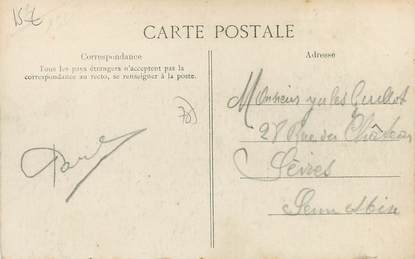 15Z
CARTE POSTALE
Correspondance
Tous les pays étrangers n'acceptent pas la
correspondance au recto, se renseigner à la poste.
Adresse
78
Monsieur Jules Guillot
27 Rue du Château
Sèvres
Seine
Paul